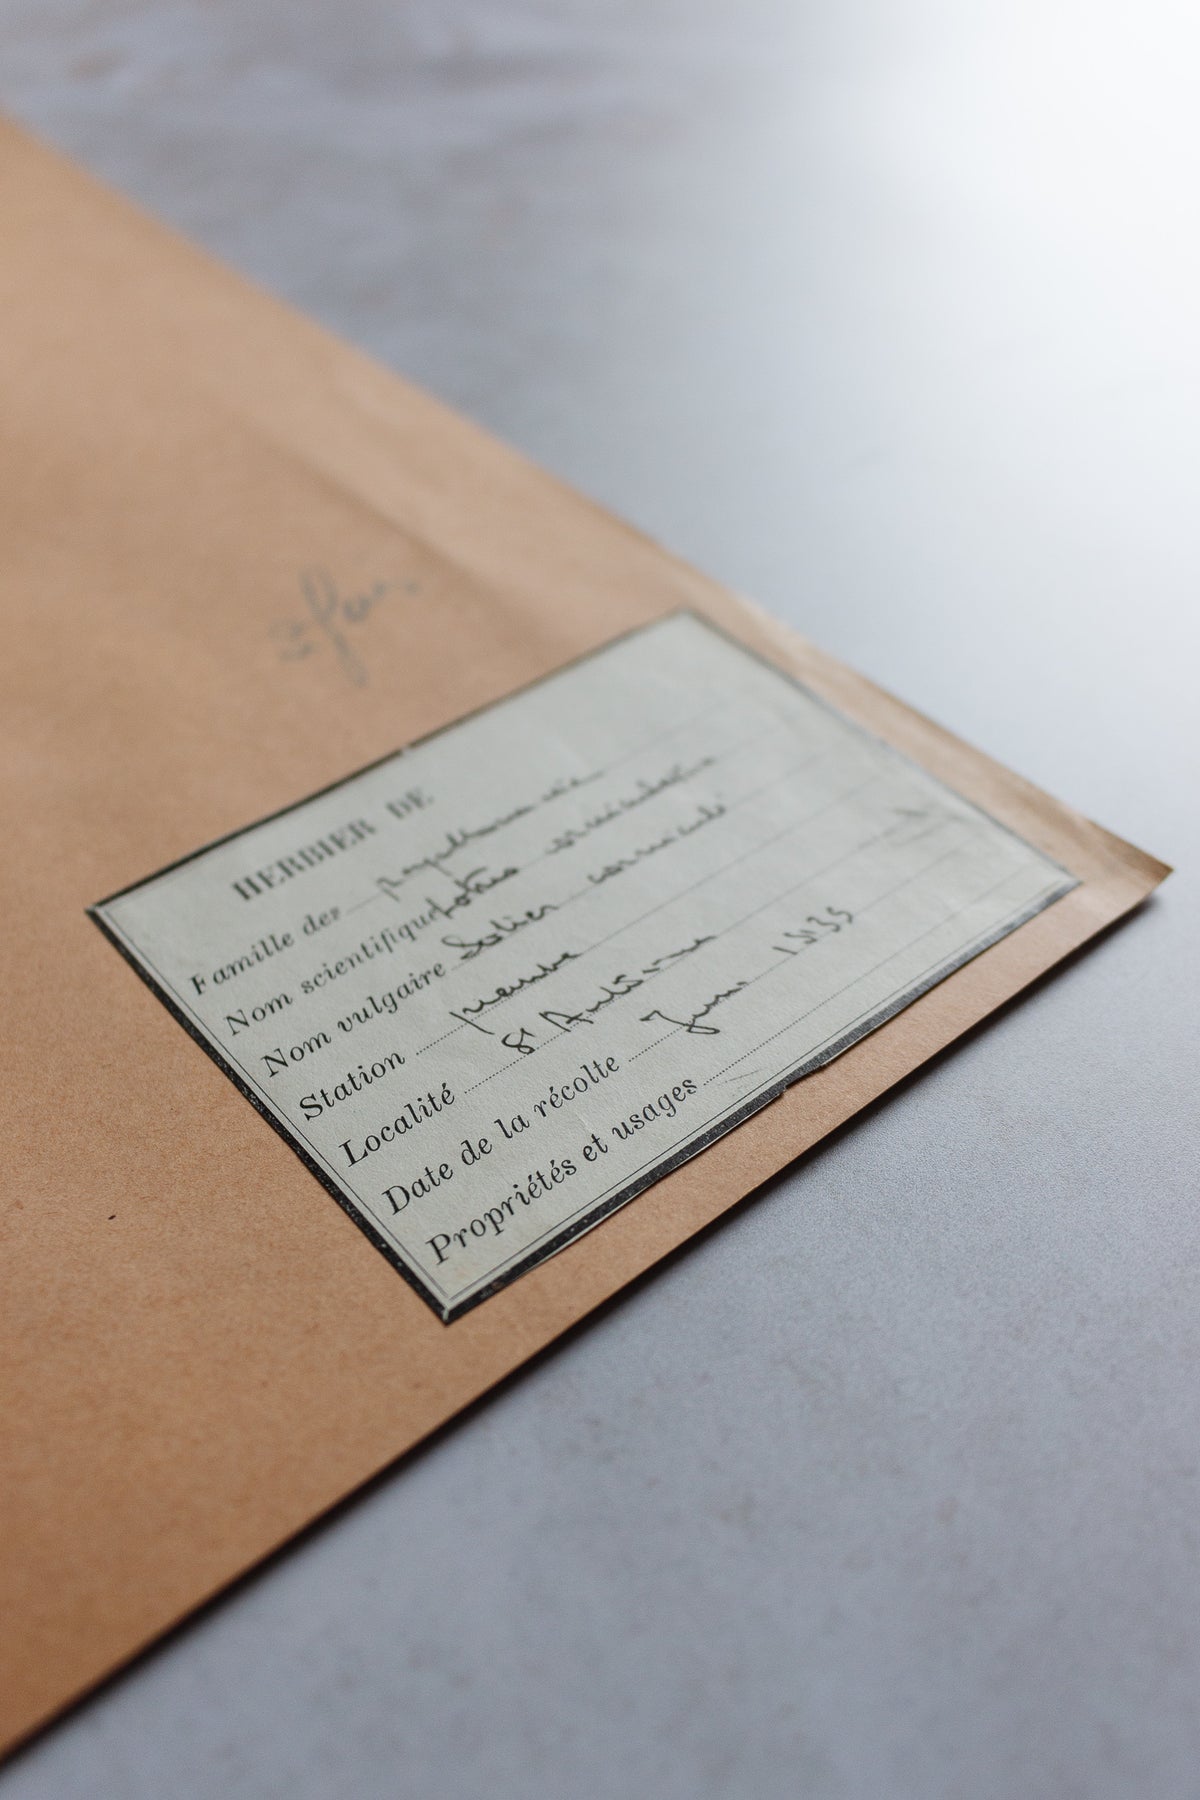 HERBIER DE
Famille des papilionacée
Nom scientifique Lotus corniculatus
Nom vulgaire Lotier corniculé
Station
Localité St Antoine
Date de la récolte Juin 1935
Propriétés et usages